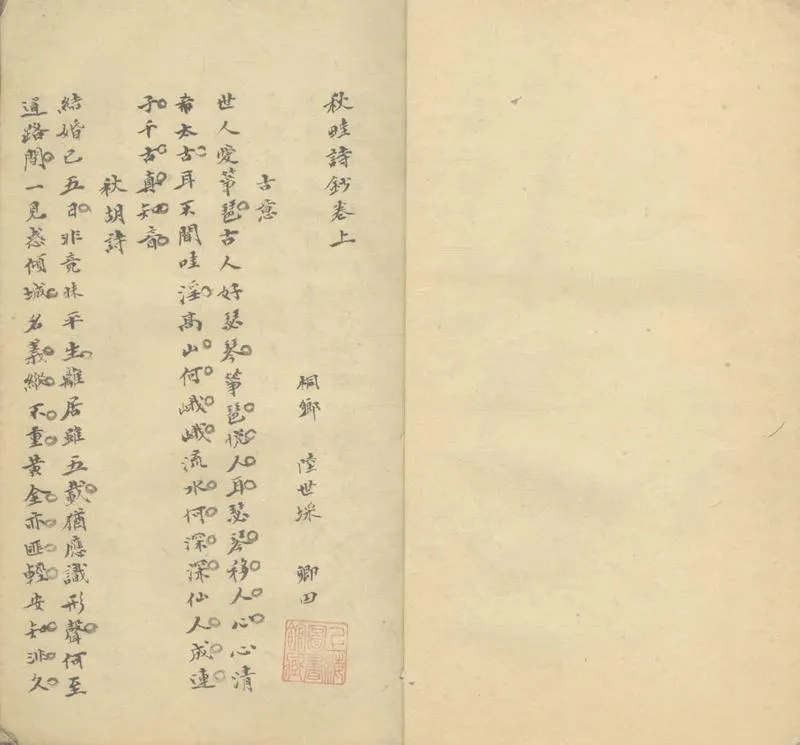 秋畦詩鈔卷上
桐鄉 陸世埰 卿田
古意
世人愛箏琶古人好瑟琴箏琶悅人耳瑟琴移人心心清
希太古耳不聞哇淫高山何峨峨流水何深深仙人成連
子千古真知音
秋胡詩
結婚已五日非竟昧平生離居雖五載猶應識形聲何至
道路間一見惑傾城名義縱不重黃金亦匪輕安知非久